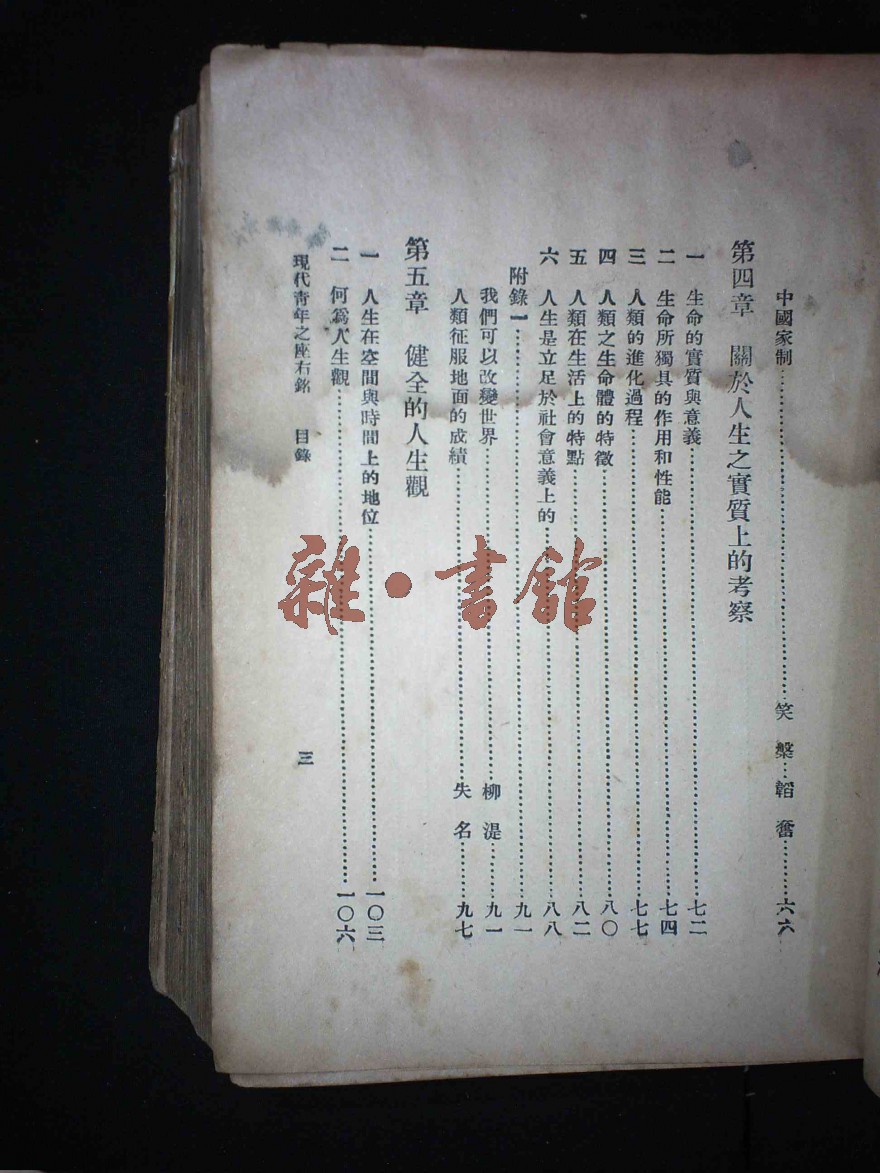 中國家制……笑 槃…韜 奮……六六
第四章　關於人生之實質上的考察
一　生命的實質與意義……七二
二　生命所獨具的作用和性能……七四
三　人類的進化過程……七七
四　人類之生命體的特徵……八〇
五　人類在生活上的特點……八二
六　人生是立足於社會意義上的……八八
附錄一……九一
我們可以改變世界……柳 湜…九一
人類征服地面的成績……失 名…九七
第五章　健全的人生觀
一　人生在空間與時間上的地位……一〇三
二　何爲人生觀……一〇六
現代青年之座右銘　目錄
三
雜·書館